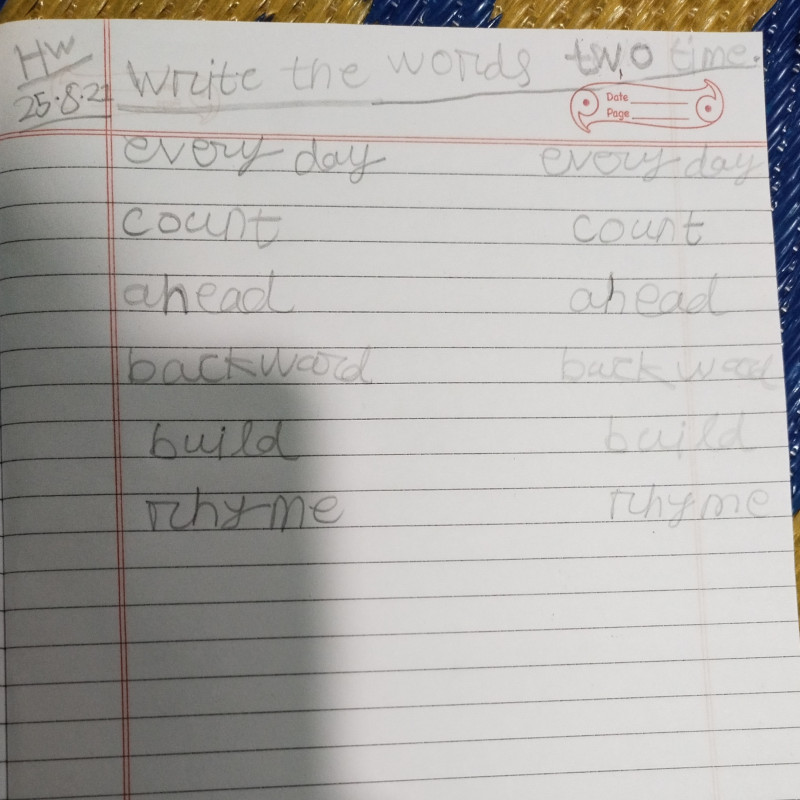 HW
25.8.21
Write the words two time.
Date
Page
every day every day
count count
ahead ahead
backward backward
build build
rhyme rhyme